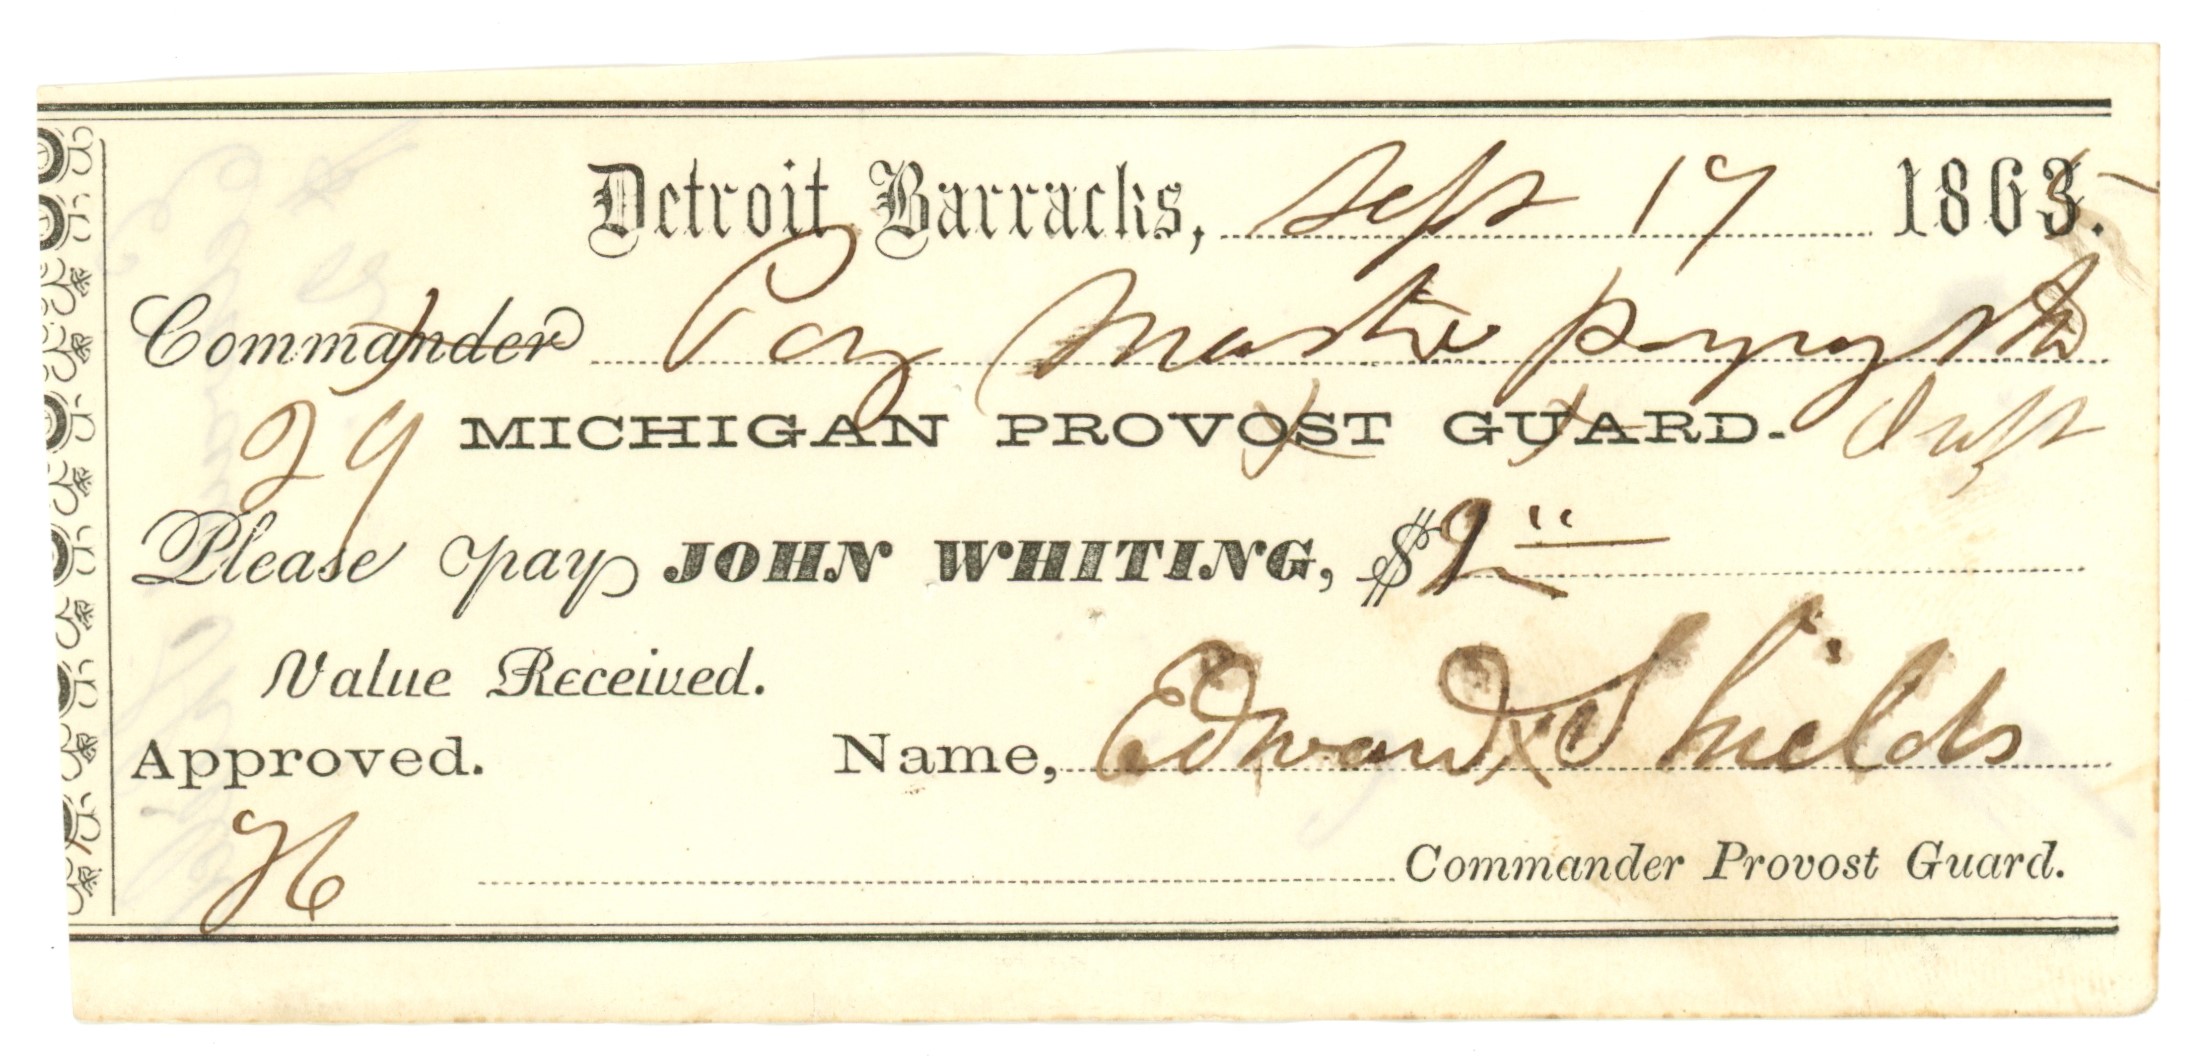 Detroit Barracks, Sept 17 1865.
Commander Pay Master paying the
29 MICHIGAN PROVOST GUARD. Infr
Please pay JOHN WHITING, $2 00
Value Received.
Approved. Name, Edward X Shields
Commander Provost Guard.